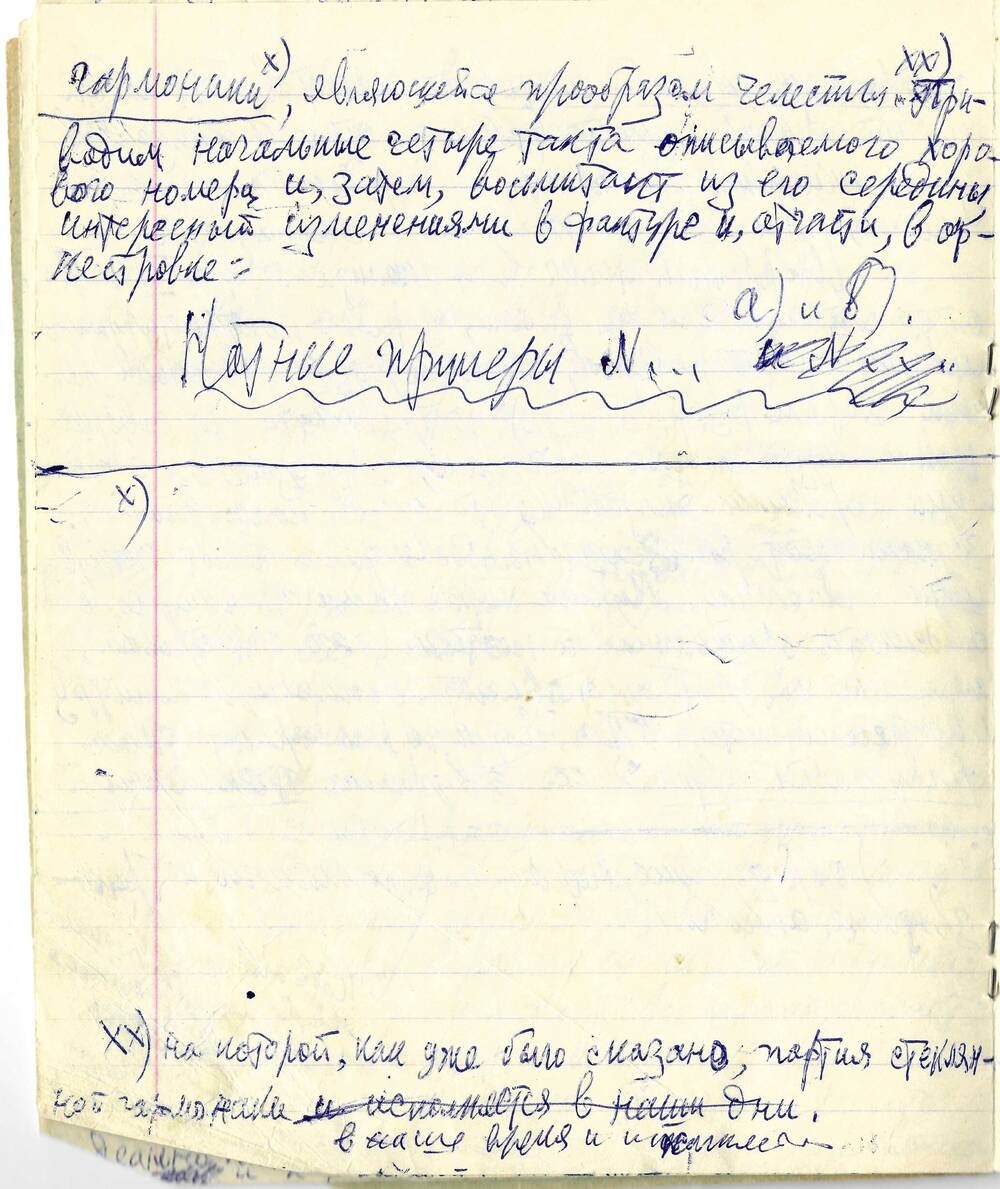 гармоники x), являющейся прообразом челестыxx). При-
водим начальные четыре такта описываемого хоро-
вого номера и, затем, восьмитакт из его середины,
интересный изменениями в фактуре и, отчасти, в ор-
кестровке:
а) и в).
Нотные примеры N... и N
x)
xx) на которой, как уже было сказано, партия стеклян-
ной гармоники и исполняется в наши дни.
в наше время и